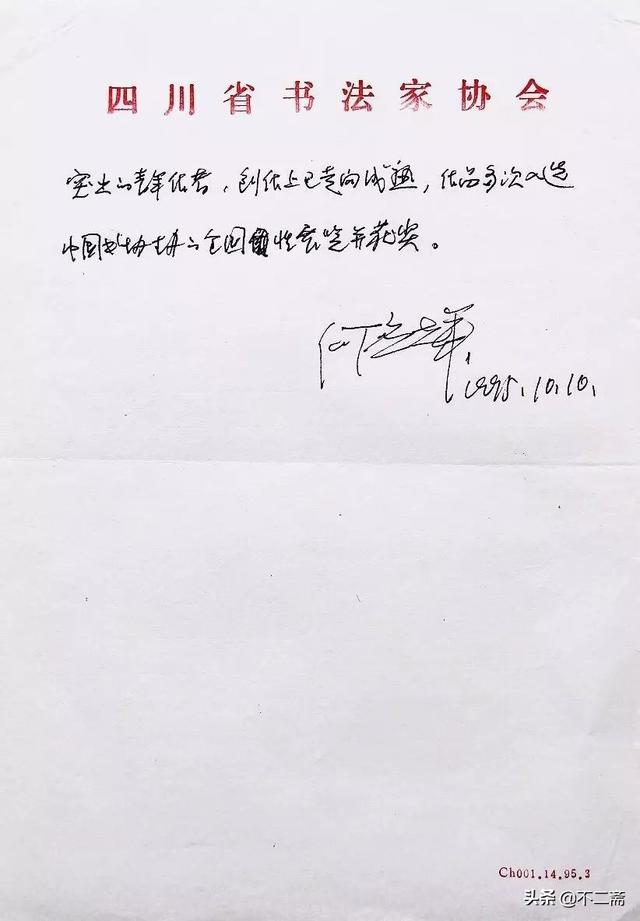 四川省书法家协会
突出的青年作者，创作上已走向成熟，作品多次入选
中国书协主办的全国性展览并获奖。
何应辉
1995.10.10.
Ch001.14.95.3
头条 @不二斋